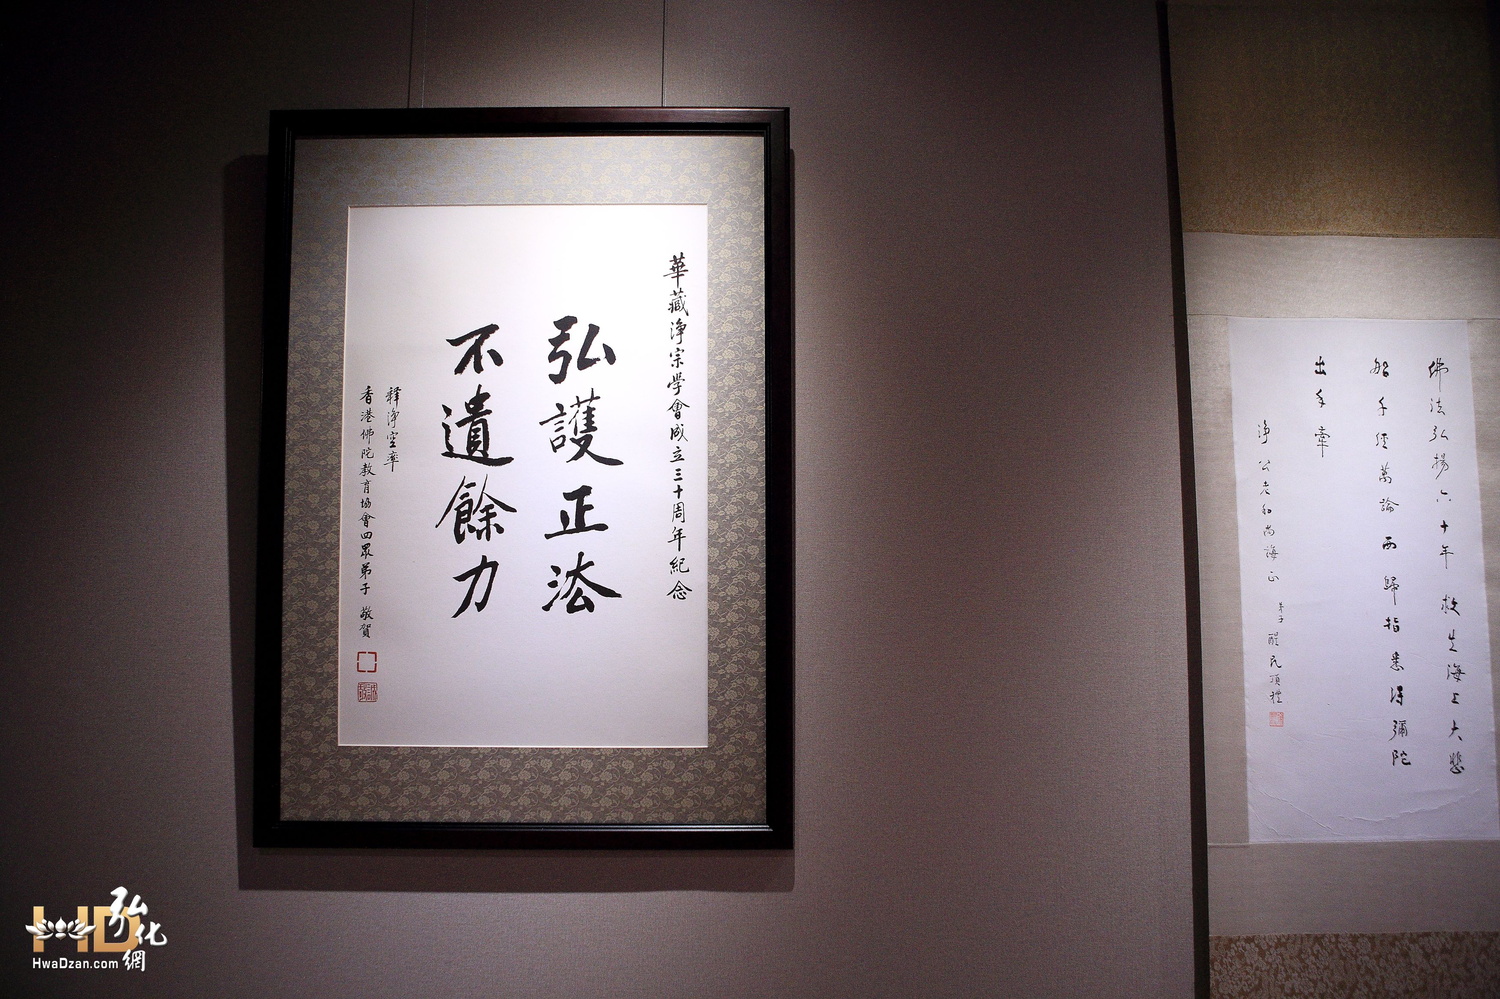 華藏淨宗學會成立三十周年紀念
弘護正法
不遺餘力
釋淨空率
香港佛陀教育協會四眾弟子 敬賀
佛法弘揚六十年 救生海上大悲
船 千經萬論西歸指 悉得彌陀
出手牽
淨公老和尚誨正 弟子醒民頂禮
HD弘化網
HwaDzan.com